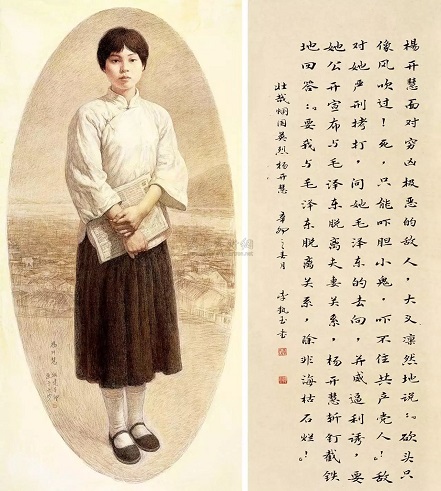 楊开慧面对穷凶极恶的敌人，大义凛然地说：“砍头只
像风吹过！死，只能吓胆小鬼，吓不住共产党人！”敌
对她严刑拷打，问她毛泽东的去向，并威逼利诱，要
她公开宣布与毛泽东脱离夫妻关系，楊开慧斩钉截铁
地回答：“要我与毛泽东脱离关系，除非海枯石烂！”
壮哉英烈楊开慧 辛卯之春月 李执玉书
楊开慧